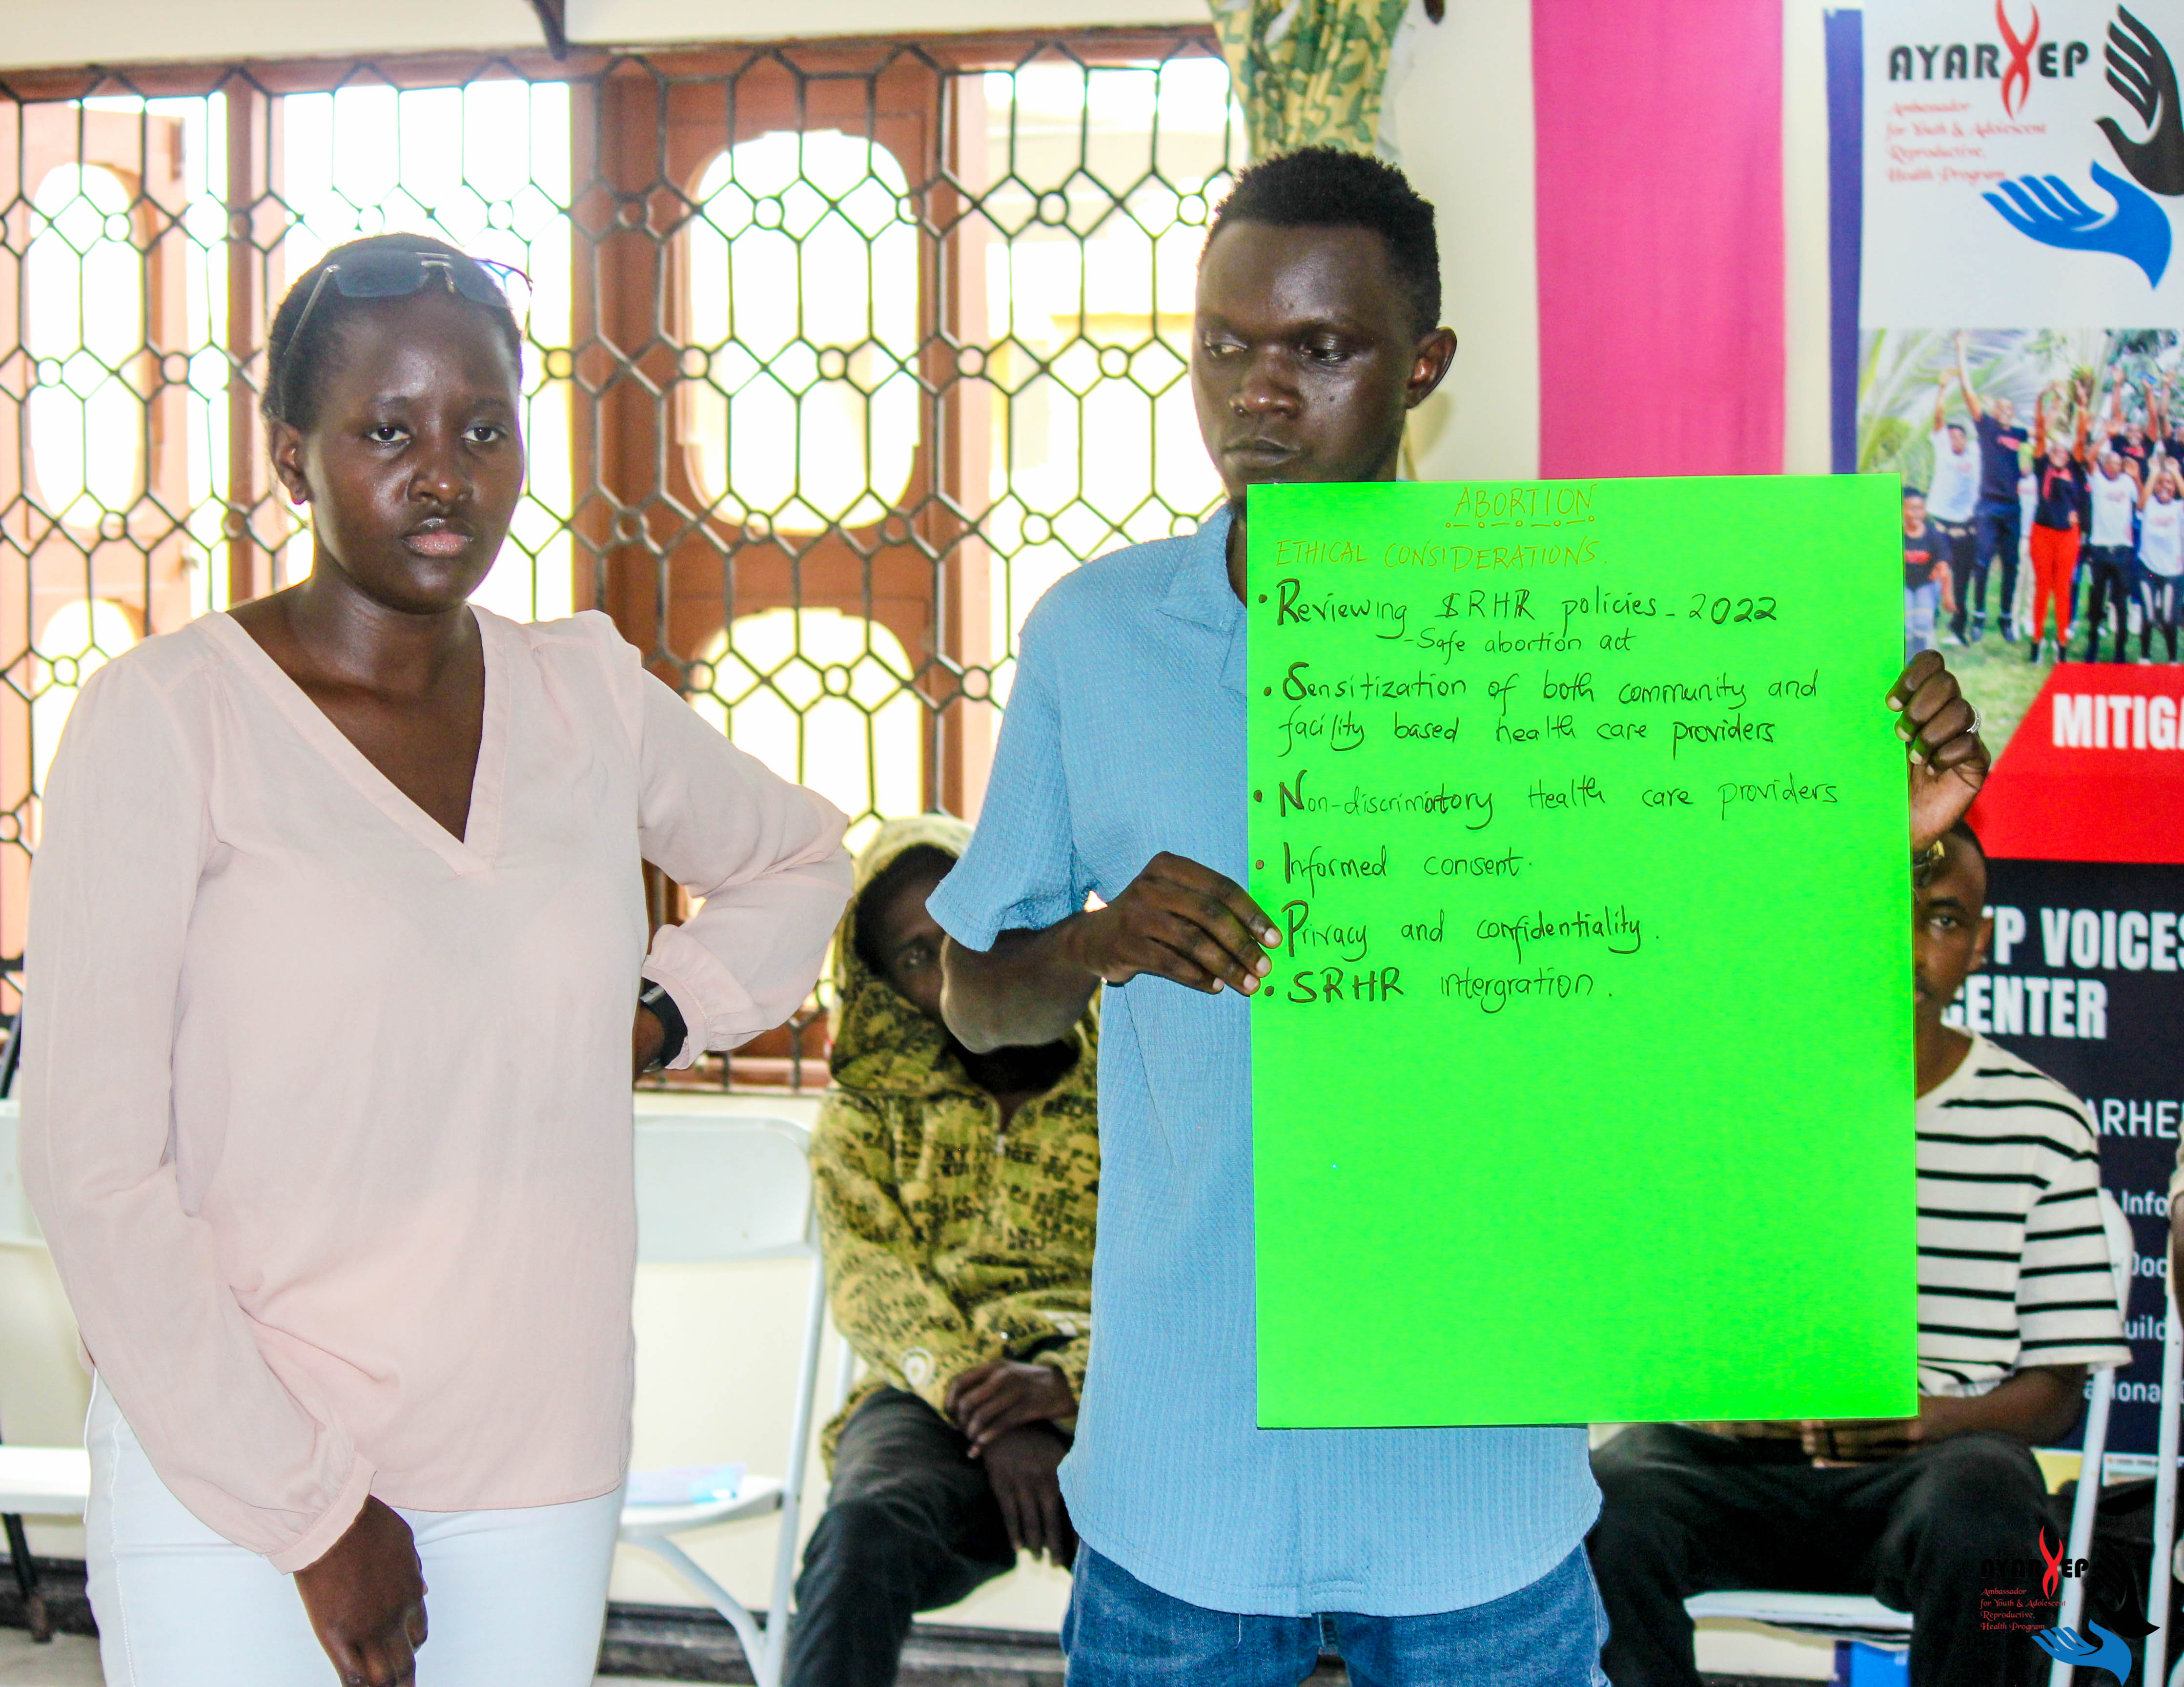 AYARHEP
Ambassador
for Youth & Adolescent
Reproductive,
Health Program
ABORTION
ETHICAL CONSIDERATIONS.
• Reviewing SRHR policies - 2022
- Safe abortion act
• Sensitization of both community and
facility based health care providers
• Non-discrimatory Health care providers
• Informed consent.
• Privacy and confidentiality.
• SRHR intergration.
MITIGA
VOICES
CENTER
ARHE
Info
Doc
uild
ationa
AYARHEP
Ambassador
for Youth & Adolescent
Reproductive,
Health Program